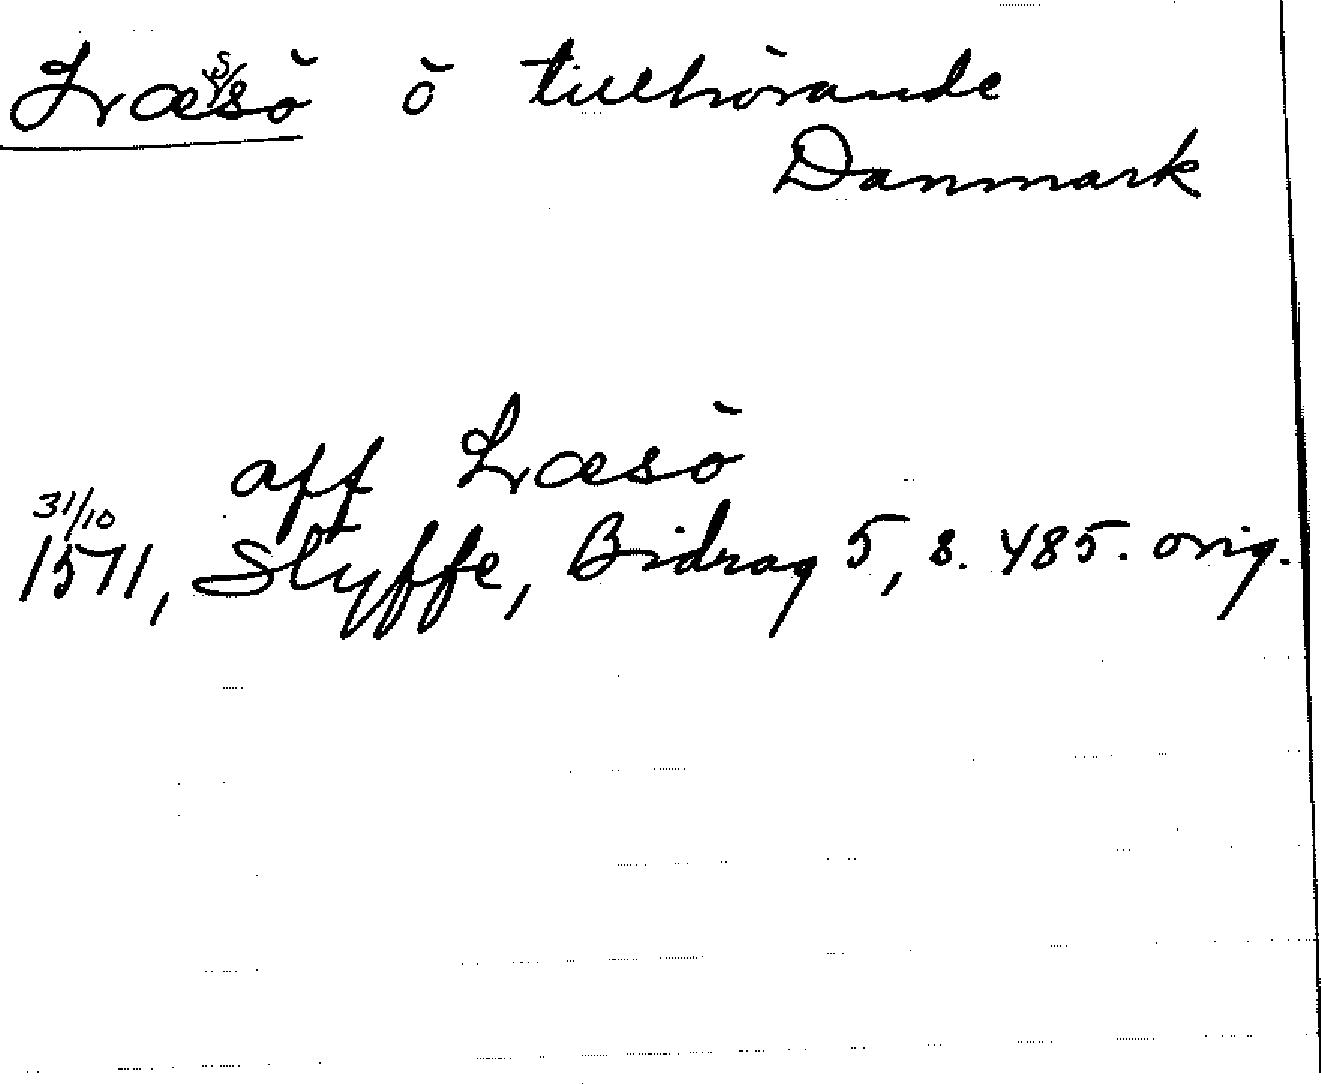 Læsö ö tillhörande
Danmark
aff Læsö
31/10
1511, Styffe, Bidrag 5, s. 485. orig.